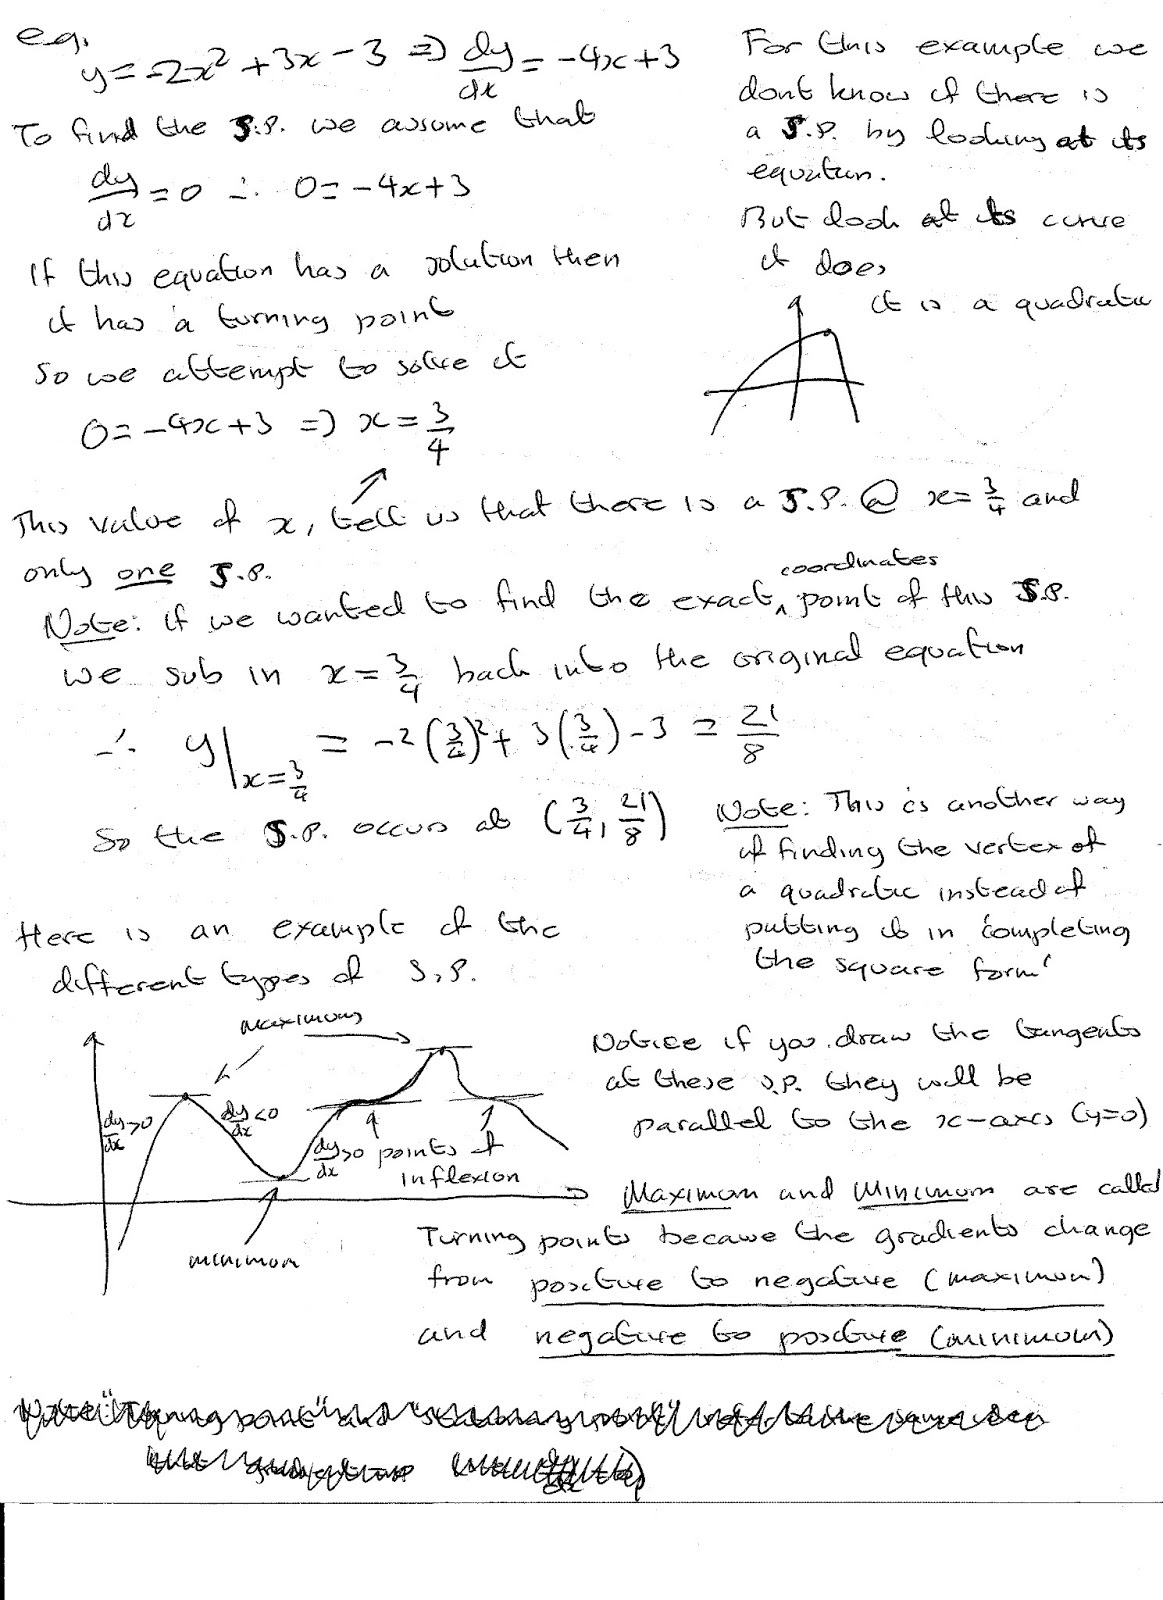 e.g.
y = -2x² + 3x - 3 ⇒ dy/dx = -4x + 3
To find the S.P. we assume that
dy/dx = 0 ∴ 0 = -4x + 3
If this equation has a solution then
it has a turning point
So we attempt to solve it
0 = -4x + 3 ⇒ x = 3/4
For this example we
dont know if there is
a S.P. by looking at its
equation.
But look at its curve
it does
it is a quadratic
This value of x, tell us that there is a S.P. @ x = 3/4 and
only one S.P.
coordinates
Note: if we wanted to find the exact ^ point of this S.P.
we sub in x = 3/4 back into the original equation
∴ y|x=3/4 = -2(3/4)² + 3(3/4) - 3 = 21/8
So the S.P. occurs at (3/4, 21/8)
Note: This is another way
of finding the vertex of
a quadratic instead of
putting it in 'completing
the square form'
Here is an example of the
different types of S.P.
Maximums
dy/dx > 0
dy/dx < 0
dy/dx > 0
points of
inflexion
minimum
Notice if you draw the tangents
at these S.P. they will be
parallel to the x-axis (y=0)
Maximum and Minimum are called
Turning points because the gradients change
from positive to negative (maximum)
and negative to positive (minimum)